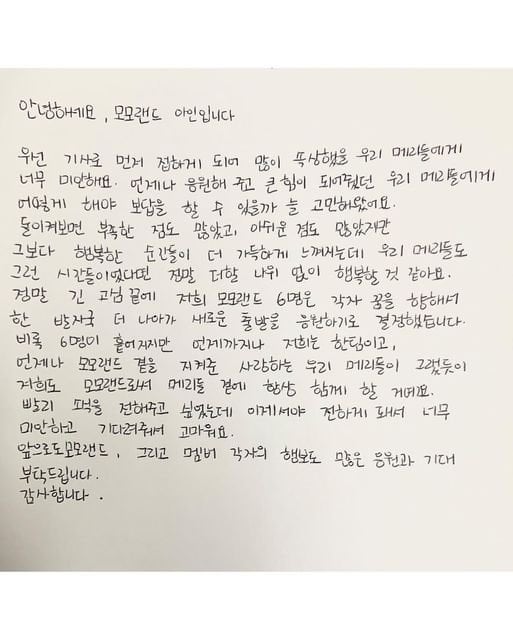 안녕하세요, 모모랜드 아인입니다
우선 기사로 먼저 접하게 되어 많이 속상했을 우리 메리들에게
너무 미안해요. 언제나 응원해 주고 큰 힘이 되어주었던 우리 메리들에게
어떻게 해야 보답을 할 수 있을까 늘 고민해왔어요.
돌이켜보면 부족한 점도 많았고, 아쉬운 점도 많았지만
그보다 행복한 순간들이 더 가득하게 느껴지는데 우리 메리들도
그런 시간들이었다면 정말 더할 나위 없이 행복할 것 같아요.
정말 긴 고심 끝에 저희 모모랜드 6명은 각자 꿈을 향해서
한 발자국 더 나아가 새로운 출발을 응원하기로 결정했습니다.
비록 6명이 흩어지지만 언제까지나 저희는 한팀이고,
언제나 모모랜드 곁을 지켜준 사랑하는 우리 메리들이 그랬듯이
저희도 모모랜드로서 메리들 곁에 항상 함께 할 거예요.
빨리 소식을 전해주고 싶었는데 이제서야 전하게 돼서 너무
미안하고 기다려줘서 고마워요.
앞으로도 모모랜드, 그리고 멤버 각자의 행보도 많은 응원과 기대
부탁드립니다.
감사합니다.